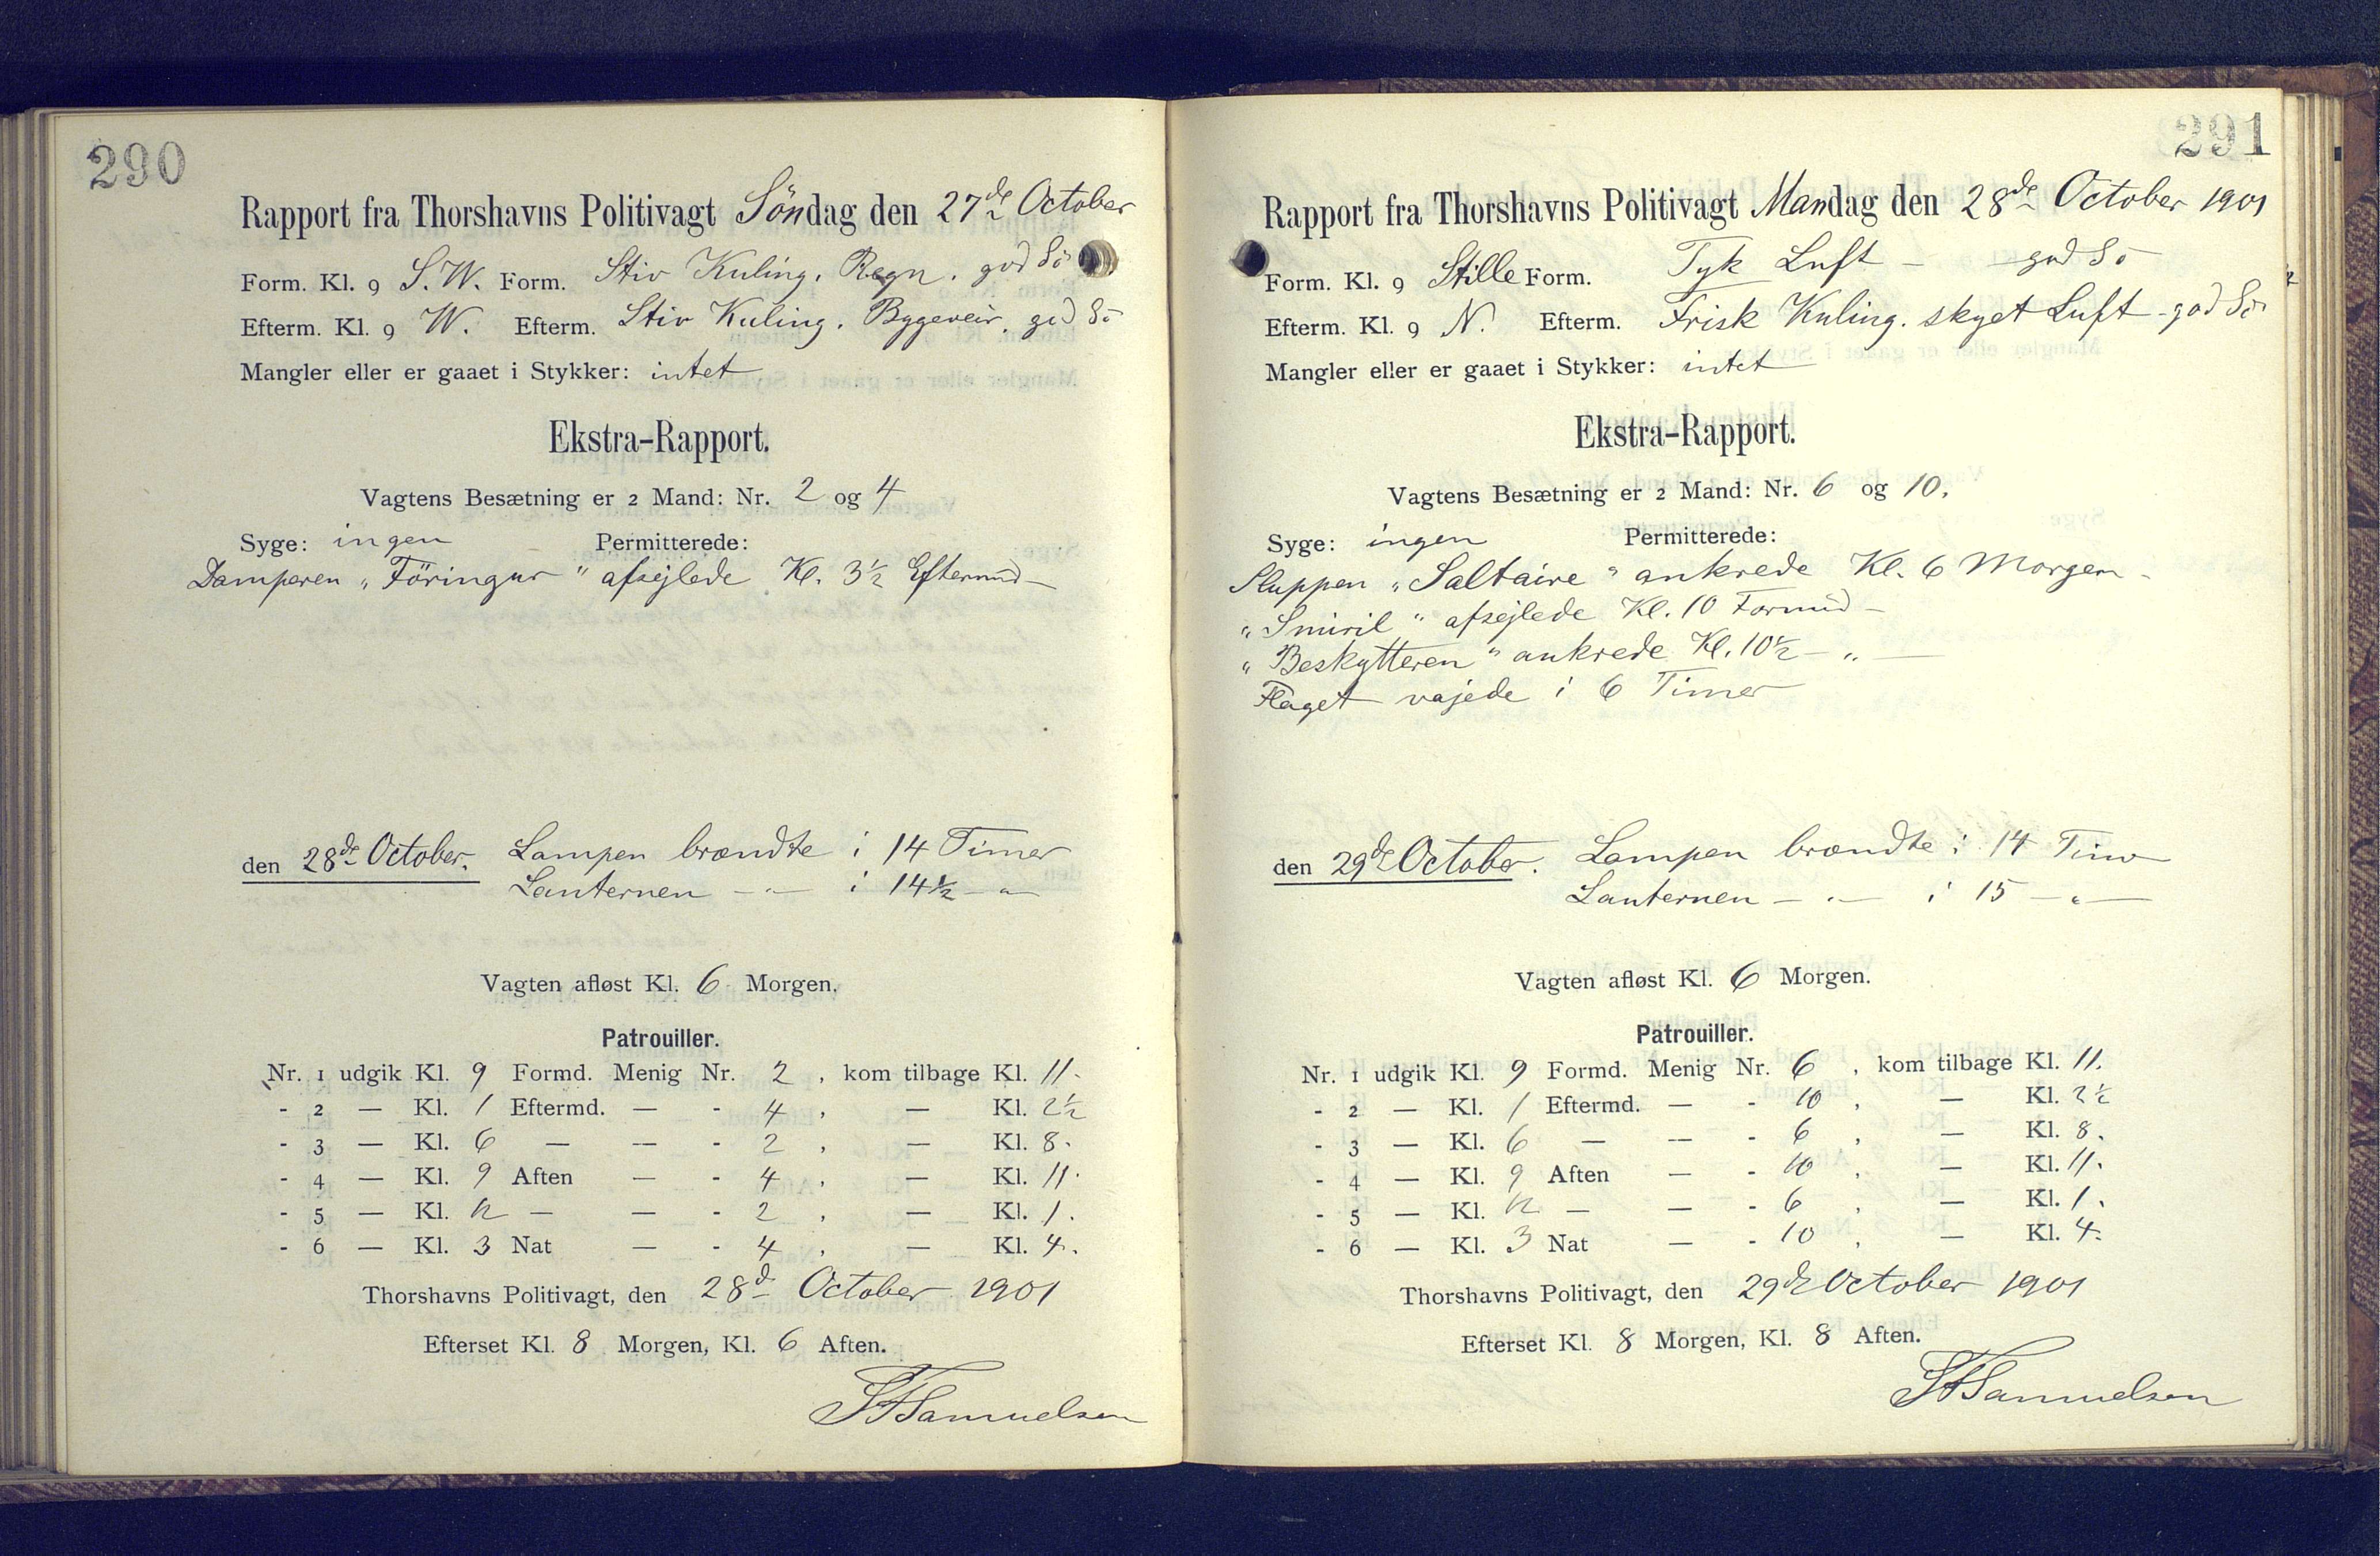 290
Rapport fra Thorshavns Politivagt Söndag den 27de October
Form. Kl. 9 S.W. Form. Stiv Kuling. Regn. god Sö
Efterm. Kl. 9 W. Efterm. Stiv Kuling. Bygeveir. god Sö
Mangler eller er gaaet i Stykker: intet
Ekstra-Rapport.
Vagtens Besætning er 2 Mand: Nr. 2 og 4
Syge: ingen Permitterede:
Damperen „Föringur“ afsejlede Kl. 3½ Eftermd
den 28de October. Lampen brændte i 14 Timer
Lanternen — „ — i 14½ — „
Vagten afløst Kl. 6 Morgen.
Patrouiller.
Nr. 1 udgik Kl. 9 Formd. Menig Nr. 2 , kom tilbage Kl. 11.
- 2 — Kl. 1 Eftermd. — - 4 , — Kl. 2½
- 3 — Kl. 6 — — - 2 , — Kl. 8.
- 4 — Kl. 9 Aften — - 4 , — Kl. 11.
- 5 — Kl. 12 — — - 2 , — Kl. 1.
- 6 — Kl. 3 Nat — - 4 , — Kl. 4.
Thorshavns Politivagt, den 28d October 1901
Efterset Kl. 8 Morgen, Kl. 6 Aften.
Samuelsen
291
Rapport fra Thorshavns Politivagt Mandag den 28de October 1901
Form. Kl. 9 Stille Form. Tyk Luft — god Sö
Efterm. Kl. 9 N. Efterm. Frisk Kuling. skyet Luft - god Sö
Mangler eller er gaaet i Stykker: intet
Ekstra-Rapport.
Vagtens Besætning er 2 Mand: Nr. 6 og 10.
Syge: ingen Permitterede:
Sluppen „Saltaire“ ankrede Kl. 6 Morgen
„Smiril“ afsejlede Kl. 10 Formd
„Beskytteren“ ankrede Kl. 10½ — „ —
Flaget vajede i 6 Timer
den 29de October. Lampen brændte i 14 Timer
Lanternen — „ — i 15 — „ —
Vagten afløst Kl. 6 Morgen.
Patrouiller.
Nr. 1 udgik Kl. 9 Formd. Menig Nr. 6 , kom tilbage Kl. 11.
- 2 — Kl. 1 Eftermd. — - 10 , — Kl. 2½
- 3 — Kl. 6 — — - 6 , — Kl. 8.
- 4 — Kl. 9 Aften — - 10 , — Kl. 11.
- 5 — Kl. 12 — — - 6 , — Kl. 1.
- 6 — Kl. 3 Nat — - 10 , — Kl. 4.
Thorshavns Politivagt, den 29de October 1901
Efterset Kl. 8 Morgen, Kl. 8 Aften.
Samuelsen